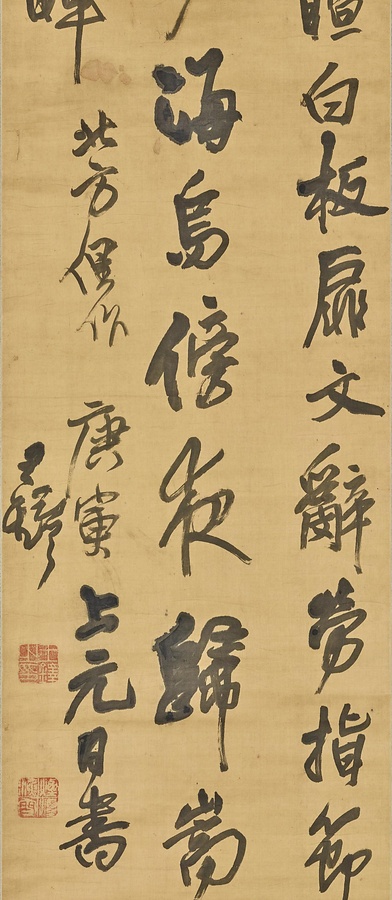 白板扉文辭勞指節
海烏傍夜歸嵩
北方作 庚寅上元日書
王鐸